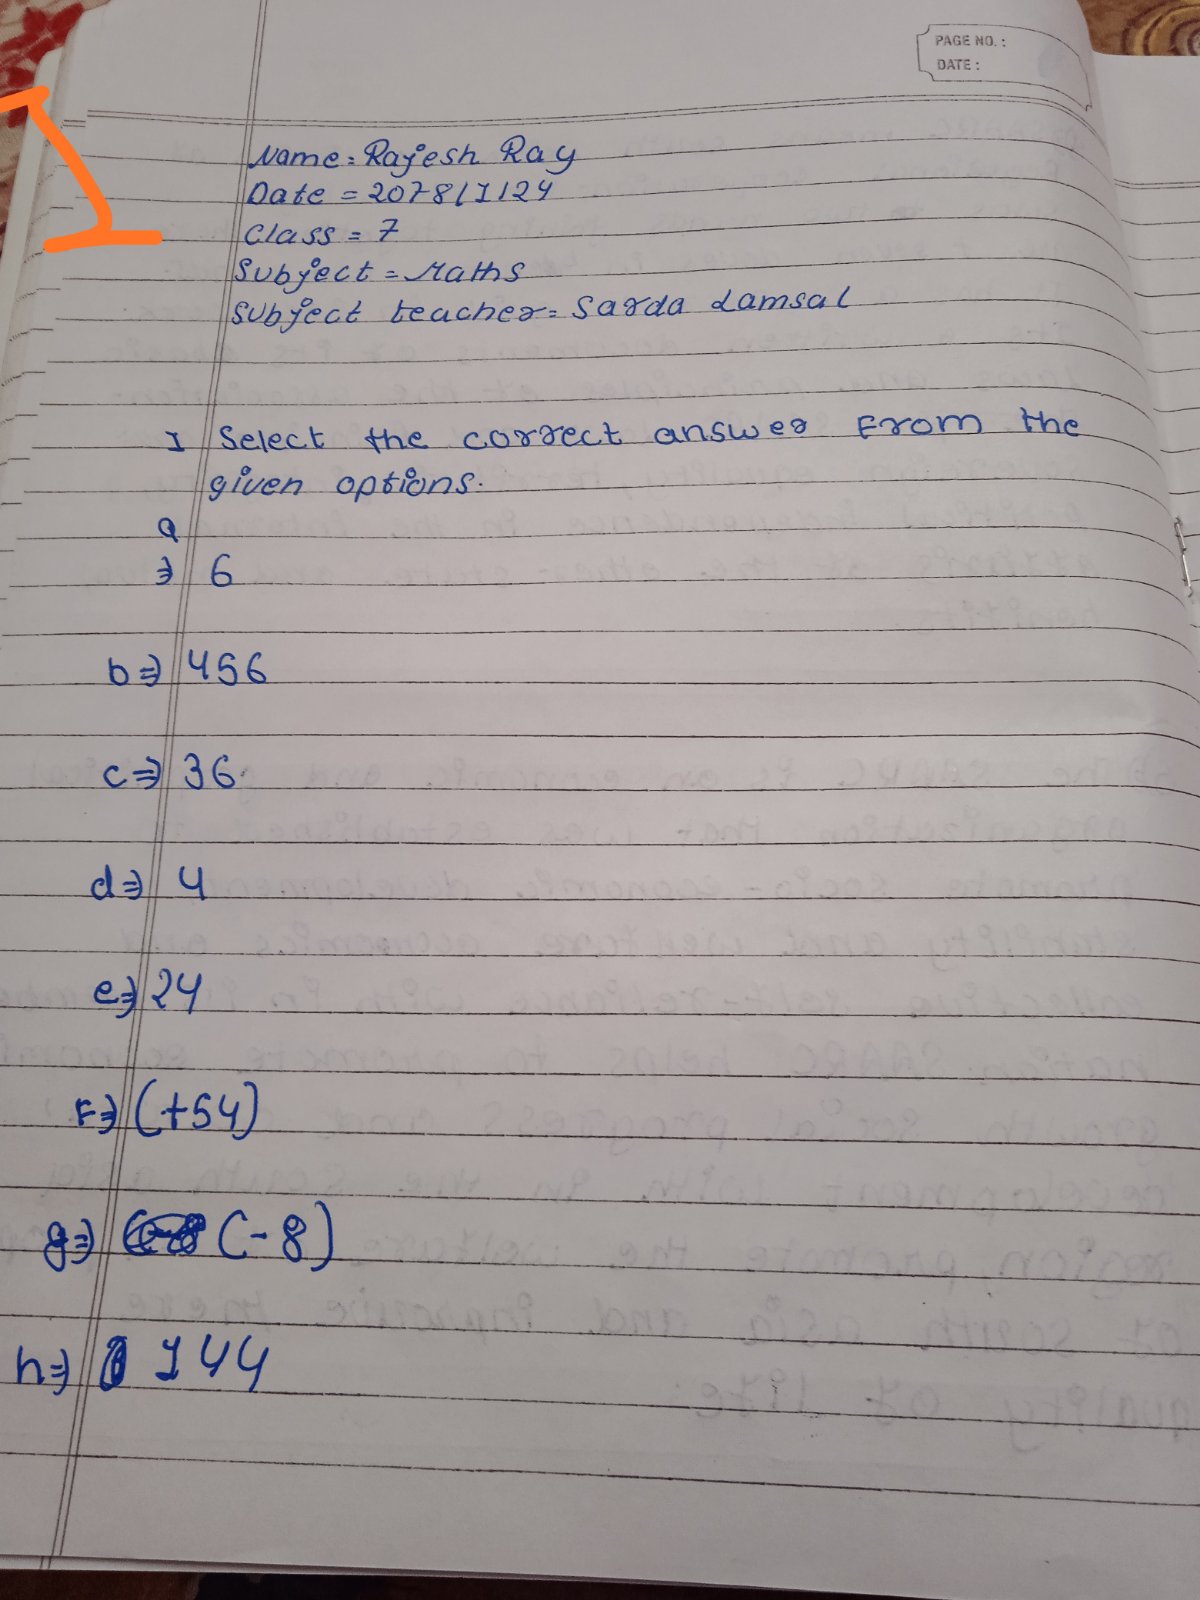 PAGE NO. :
DATE :
1
Name = Rajesh Ray
Date = 2078/1/24
Class = 7
Subject = Maths
Subject teacher = Sarda Lamsal
1 Select the correct answer From the
given options.
a
⇒ 6
b ⇒ 456
c ⇒ 36
d ⇒ 4
e ⇒ 24
F ⇒ (+54)
g ⇒ (-8)
h ⇒ 144